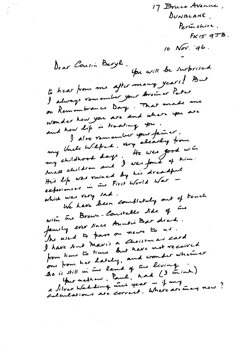 17 Bruce Avenue,
DUNBLANE,
Perthshire,
FK15 9JB.
10 Nov. '96.
Dear Cousin Beryl,
You will be surprised
to hear from me after many years! But
I always remember your brother Peter
on Remembrance Day. That made me
wonder how you are and where you are
and how life is treating you.
I also remember your father,
my Uncle Wilfred, very clearly from
my childhood days. He was good with
small children and I was fond of him.
His life was ruined by his dreadful
experiences in the First World War –
which was very sad.
We have been completely out of touch
with the Brown-Constable side of the
family ever since Auntie Bar died.
She used to pass on news to us.
I have sent Mavis a Christmas card
from time to time but have not received
one from her lately, and wonder whether
she is still in the land of the living.
Your nephew, Paul, had (I think)
a Silver Wedding this year – if my
calculations are correct. Where are they now?